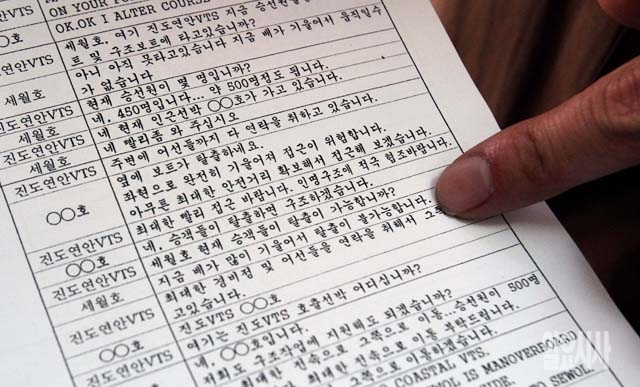 ON YOUR P
OK.OK I ALTER COURSE
○○호
세월호, 여기 진도연안VTS 지금 승선원들
트 및 구조보트에 타고있습니까?
진도연안VTS
아니 아직 못타고있습니다 지금 배가 기울어서 움직일수
가 없습니다
세월호
현재 승선원이 몇 명입니까?
진도연안VTS
네, 450명입니다... 약 500명정도 됩니다.
세월호
네 현재 인근선박 ○○호가 가고 있습니다.
진도연안VTS
네 빨리좀 와 주십시오
세월호
주변에 어선들까지 다 연락을 취하고 있습니다.
진도연안VTS
옆에 보트가 탈출하네요.
좌현으로 완전히 기울어져 접근이 위험합니다.
○○호
아무튼 최대한 안전거리 확보해서 접근해 보겠습니다.
최대한 빨리 접근 바랍니다. 인명구조에 적극 협조바랍니다.
진도연안VTS
네, 승객들이 탈출하면 구조하겠습니다.
○○호
세월호 현재 승객들이 탈출이 가능합니까?
진도연안VTS
지금 배가 많이 기울어서 탈출이 불가능합니다.
세월호
최대한 경비정 및 어선들을 연락을 취해서 그쪽
고있습니다.
진도연안VTS
진도VTS ○○호
여기는 진도VTS 호출선박 어디십니까?
○○호
네, ○○호입니다.
저희도 구조작업에 지원해도 되겠습니까?
진도연안VTS
최대한 전속으로 그쪽으로 이동...승선원이 500명
최대한 전속으로 이동 부탁드립니다.
그쪽으로 이동하겠습니다.
COASTAL VTS.
L IS MANOVERBORD